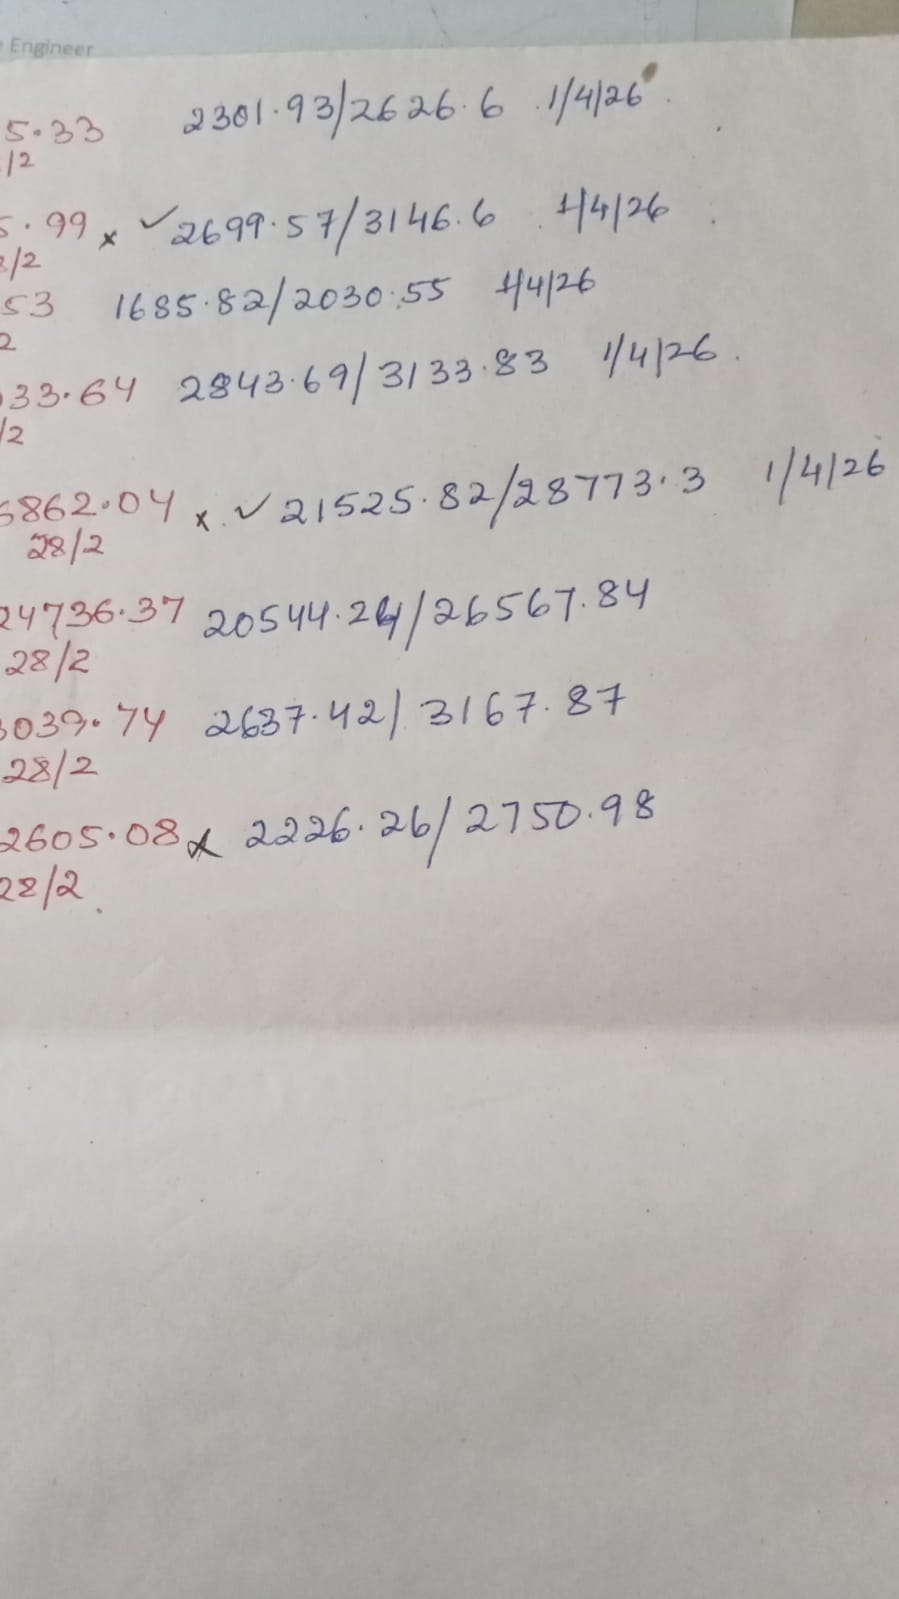 Engineer
5.33 2301.93/2626.6 1/4/26
/2
5.99 x ✓ 2699.57/3146.6 1/4/26
/2
53 1685.82/2030.55 1/4/26
2
33.64 2843.69/3133.83 1/4/26
/2
6862.04 x ✓ 21525.82/28773.3 1/4/26
28/2
24736.37 20544.24/26567.84
28/2
3039.74 2637.42/3167.87
28/2
2605.08 x 2226.26/2750.98
28/2